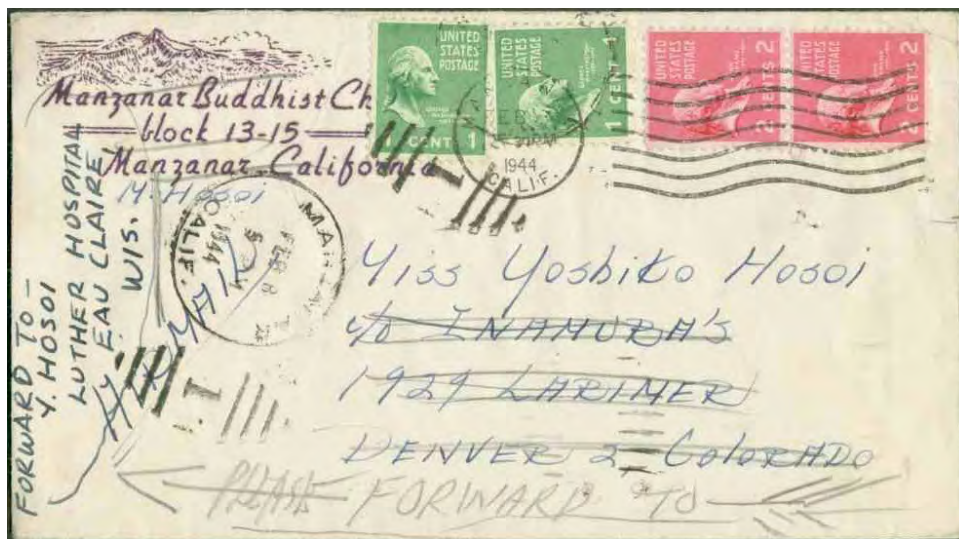 Manzanar Buddhist Ch
block 13-15
Manzanar, California
M. Hosoi
UNITED STATES POSTAGE
1 CENT 1
UNITED STATES POSTAGE
1 CENT 1
UNITED STATES POSTAGE
2 CENTS 2
UNITED STATES POSTAGE
2 CENTS 2
1944
CALIF.
MANZANAR
FEB 8
1944
CALIF.
1
1
Miss Yoshiko Hosoi
c/o INAMURA'S
1929 LARIMER
DENVER 2 COLORADO
PLEASE FORWARD TO
FORWARD TO -
Y. HOSOI
LUTHER HOSPITAL
EAU CLAIRE
WIS.